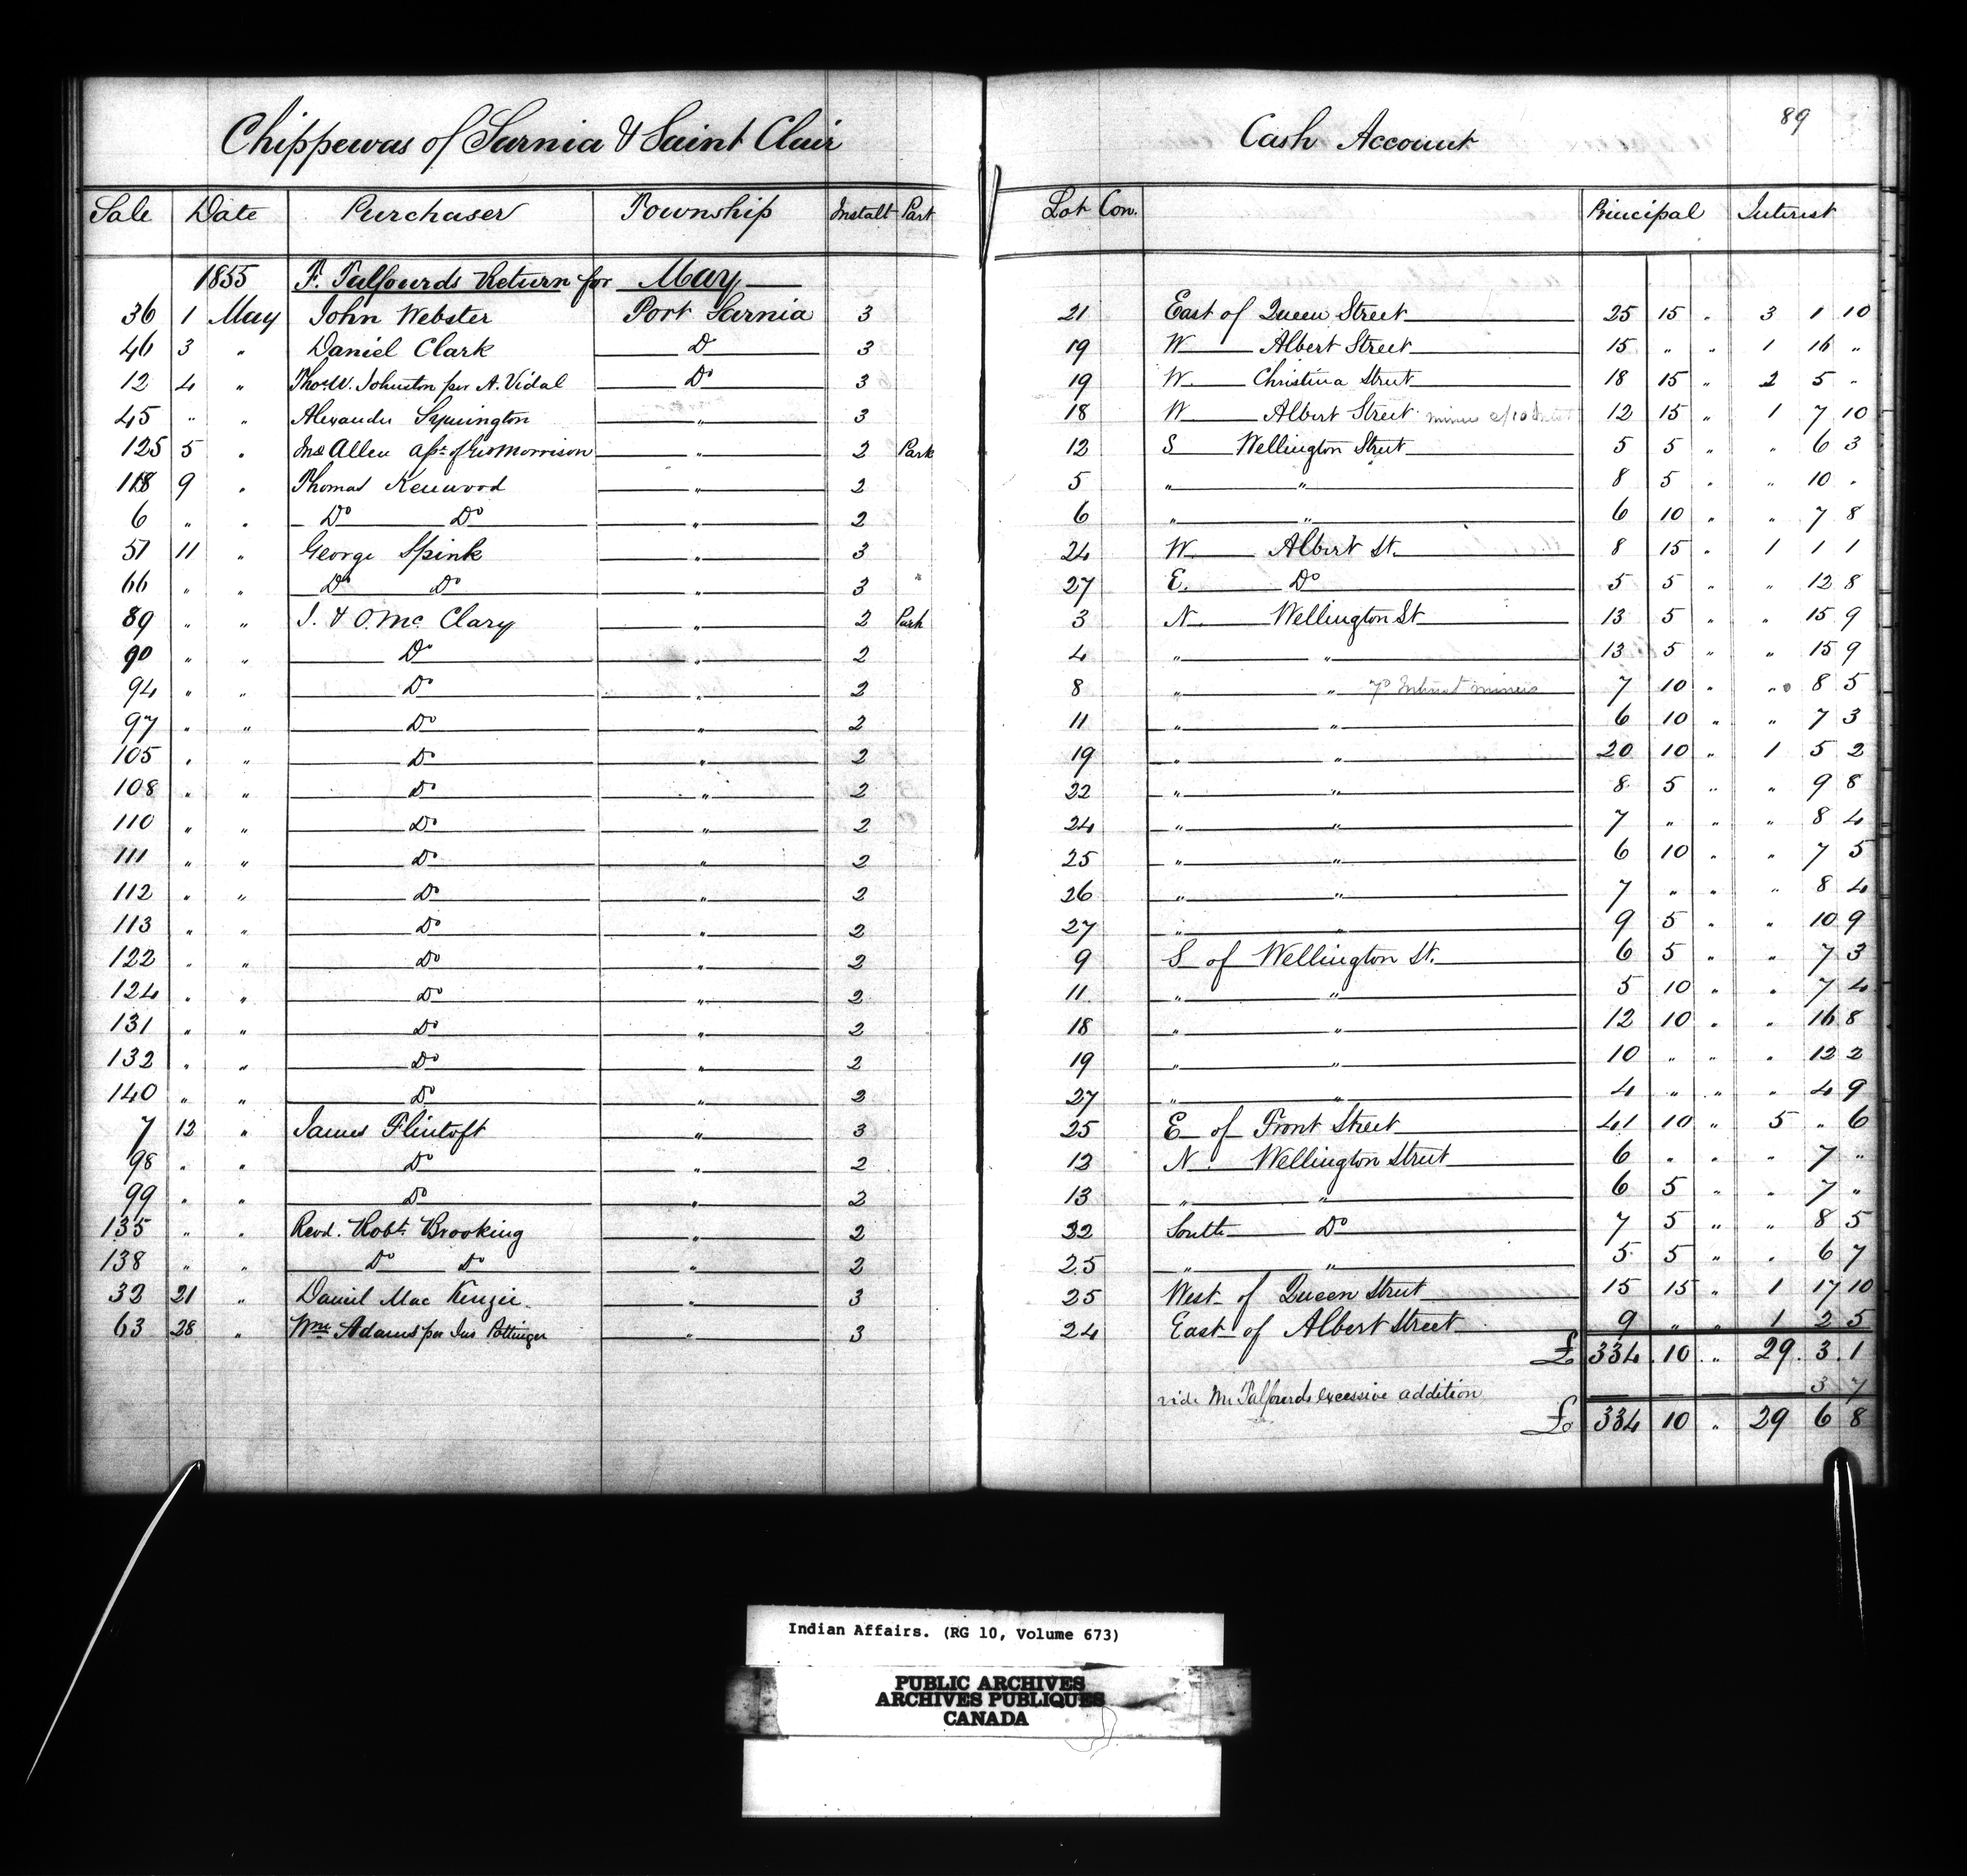 Chippewas of Sarnia & Saint Clair Cash Account 89
Sale Date Purchaser Township Instalt Part Lot Con. Principal Interest
1855 F. Talfourds Return for May
36 1 May John Webster Port Sarnia 3 21 East of Queen Street 25 15 " 3 1 10
46 3 " Daniel Clark Do 3 19 W Albert Street 15 " " 1 16 "
12 4 " Thos. W. Johnston per A. Vidal Do 3 19 W. Christina Street 18 15 " 2 5 "
45 " " Alexander Symington " 3 18 W Albert Street minus 2/10 Intst 12 15 " 1 7 10
125 5 " Jno Allen asse. of Geo Morrison " 2 Park 12 S Wellington Street 5 5 " " 6 3
118 9 " Thomas Kenwood " 2 5 " " 8 5 " " 10 "
6 " " Do Do " 2 6 " " 6 10 " " 7 8
51 11 " George Spink " 3 24 W. Albert St. 8 15 " 1 1 1
66 " " Do Do " 3 27 E. Do 5 5 " " 12 8
89 " " J. & O. Mc Clary " 2 Park 3 N. Wellington St 13 5 " " 15 9
90 " " Do " 2 4 " " 13 5 " " 15 9
94 " " Do " 2 8 " " Interest minus 7 10 " " 8 5
97 " " Do " 2 11 " " 6 10 " " 7 3
105 " " Do " 2 19 " " 20 10 " 1 5 2
108 " " Do " 2 22 " " 8 5 " " 9 8
110 " " Do " 2 24 " " 7 " " " 8 4
111 " " Do " 2 25 " " 6 10 " " 7 5
112 " " Do " 2 26 " " 7 " " " 8 4
113 " " Do " 2 27 " " 9 5 " " 10 9
122 " " Do " 2 9 S of Wellington St. 6 5 " " 7 3
124 " " Do " 2 11 " " 5 10 " " 7 4
131 " " Do " 2 18 " " 12 10 " " 16 8
132 " " Do " 2 19 " " 10 " " " 12 2
140 " " Do " 2 27 " " 4 " " " 4 9
7 12 " James Flintoft " 3 25 E of Front Street 41 10 " 5 " 6
98 " " Do " 2 12 N. Wellington Street 6 " " " 7 "
99 " " Do " 2 13 " " 6 5 " " 7 "
135 " " Revd. Robt Brooking " 2 22 South Do 7 5 " " 8 5
138 " " Do Do " 2 25 " " 5 5 " " 6 7
32 21 " Daniel Mac Kenzie " 3 25 West of Queen Street 15 15 " 1 17 10
63 28 " Wm Adams per Jas Pottinger " 3 24 East of Albert Street 9 " " 1 2 5
£ 334 10 " 29 3 1
vide Mr Talfourds excessive addition 3 7
£ 334 10 " 29 6 8
Indian Affairs. (RG 10, Volume 673)
PUBLIC ARCHIVES
ARCHIVES PUBLIQUES
CANADA